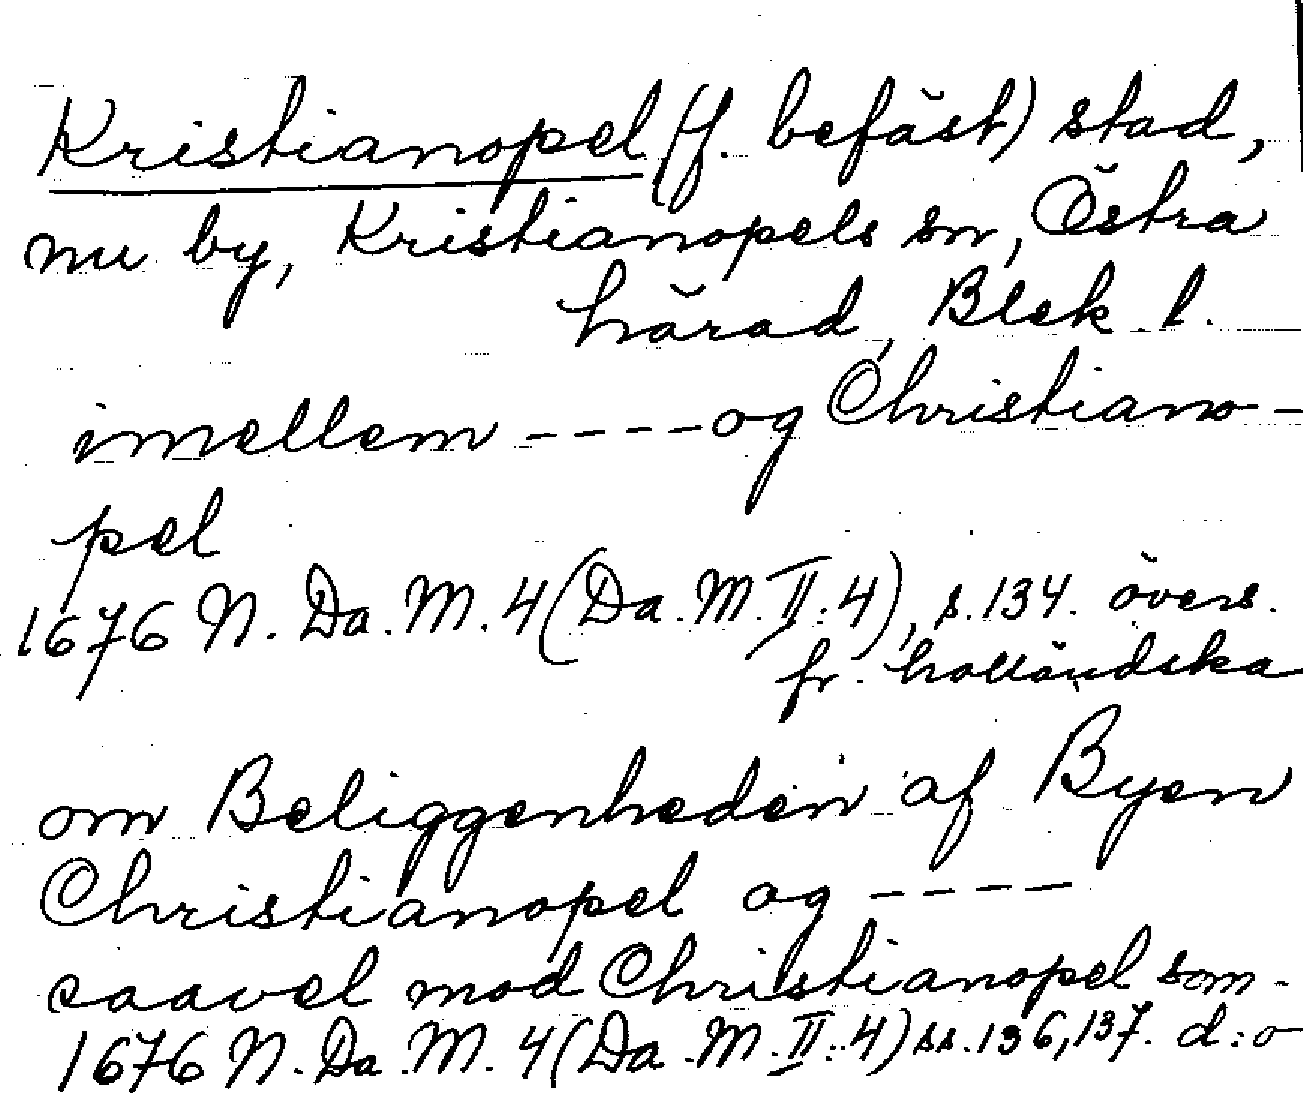 Kristianopel (f. befäst) stad,
nu by, Kristianopels sn, Östra
härad, Blek. l.
imellem ---- og Christiano-
pel
1676 N. Da. M. 4 (Da. M. II: 4), s. 134. övers.
fr. holländska
om Beliggenheden af Byen
Christianopel og ----
saavel mod Christianopel som -
1676 N. Da. M. 4 (Da. M. II: 4) ss. 136, 137. d:o